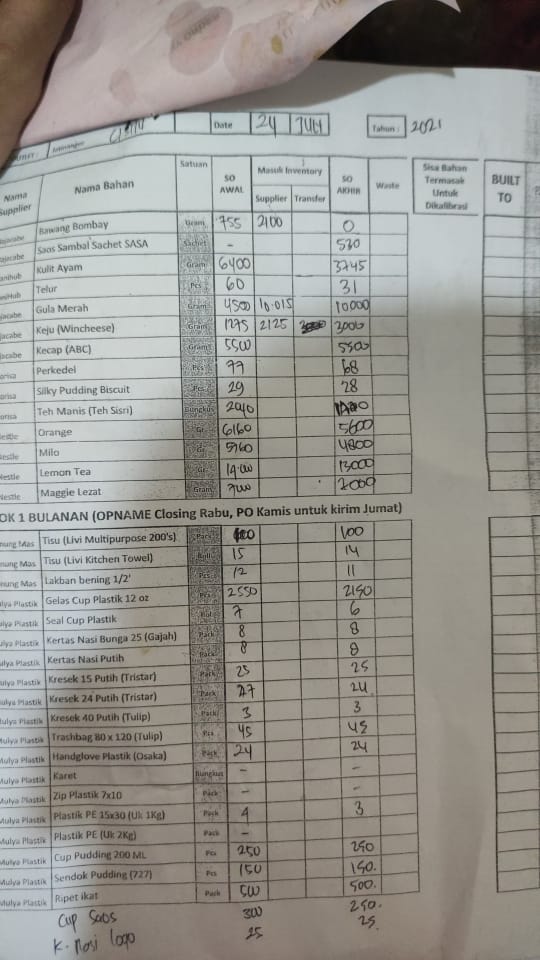 Date 24 JULI Tahun : 2021
Nama Supplier Nama Bahan Satuan SO AWAL Masuk Inventory Supplier Transfer SO AKHIR Waste Sisa Bahan Termasak Untuk Dikalibrasi BUILT TO
Bawang Bombay Gram 755 2100 0
Saos Sambal Sachet SASA Sachet - 530
Kulit Ayam Gram 6400 3745
Telur Pcs 60 31
Gula Merah Gram 4500 10.015 10000
Keju (Wincheese) Gram 1275 2125 3000
Kecap (ABC) Gram 5500 5500
Perkedel Pcs 77 68
Silky Pudding Biscuit Pcs 29 28
Teh Manis (Teh Sisri) Bungkus 2040
Orange Gr 6160 5600
Milo Gr 5760 4800
Lemon Tea Gr 14.000 13000
Maggie Lezat Gram 7000 7000
OK 1 BULANAN (OPNAME Closing Rabu, PO Kamis untuk kirim Jumat)
nung Mas Tisu (Livi Multipurpose 200's) Pack 100
nung Mas Tisu (Livi Kitchen Towel) Roll 15 14
nung Mas Lakban bening 1/2' Pcs 12 11
ulya Plastik Gelas Cup Plastik 12 oz Pcs 2550 2150
ulya Plastik Seal Cup Plastik Rol 7 6
ulya Plastik Kertas Nasi Bunga 25 (Gajah) Pack 8 8
ulya Plastik Kertas Nasi Putih Pack 8 8
ulya Plastik Kresek 15 Putih (Tristar) Pack 25 25
ulya Plastik Kresek 24 Putih (Tristar) Pack 27 24
Mulya Plastik Kresek 40 Putih (Tulip) Pack 3 3
Mulya Plastik Trashbag 80 x 120 (Tulip) Pcs 45 45
Mulya Plastik Handglove Plastik (Osaka) Pack 24 24
Mulya Plastik Karet Bungkus - -
Mulya Plastik Zip Plastik 7x10 Pack - -
Mulya Plastik Plastik PE 15x30 (Uk 1Kg) Pack 4 3
Mulya Plastik Plastik PE (Uk 2Kg) Pack -
Mulya Plastik Cup Pudding 200 ML Pcs 250 250
Mulya Plastik Sendok Pudding (727) Pcs 150 150.
Mulya Plastik Ripet ikat Pack 500 500.
Cup Saos 300 250.
K. Nasi logo 25 25